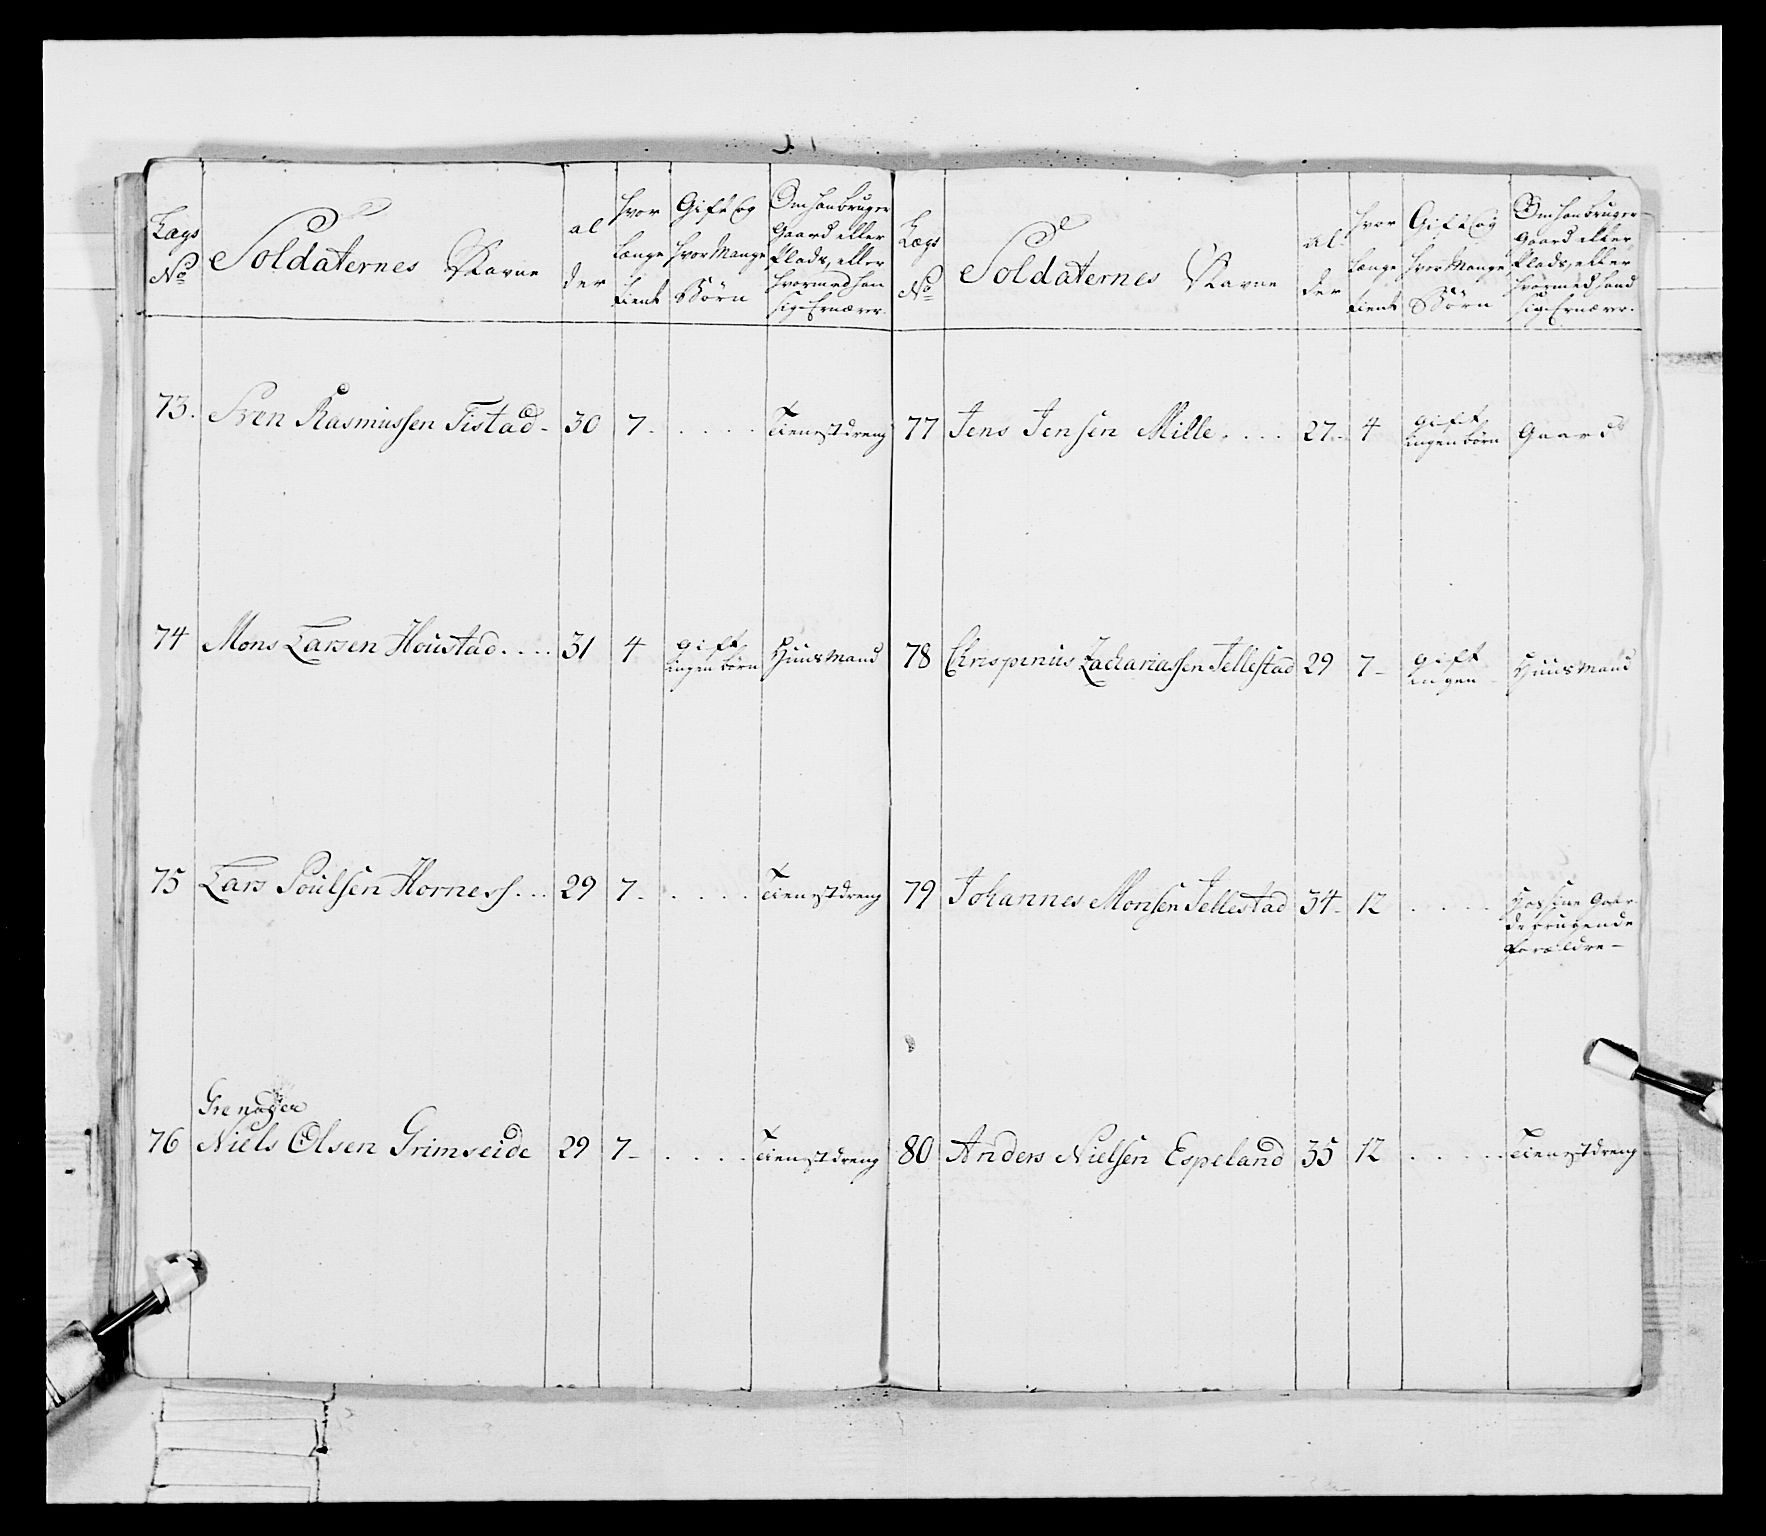 Lægs No Soldaternes Navne al der hvor længe tient Gift og hvor Mange Børn Om han bruger Gaard eller Plads, eller hvormed han sig Ernærer.
73. Sven Rasmussen Tistad - 30 7 - . . . . . Tienestdreng
74 Mons Larsen Houstad . . . . 31 4 gift ingen børn Huusmand
75 Lars Poulsen Horness . . . 29 7 - . . . . . Tienestdreng
Grenader
76 Niels Olsen Grimseide 29 7 - . . . . Tienestdreng
Lægs No Soldaternes Navne al der hvor længe tient Gift og hvor Mange Børn Om han bruger Gaard eller Plads, eller hvormed hand sig Ernærer.
77 Jens Jensen Mille . . . . 27 - 4 gift ingen børn Gaard
78 Chrispinus Zachariassen Tellestad 29 7 - gift ingen Huusmand
79 Johannes Monsen Tellestad 34 - 12 . . . . Hos sine Gaar-
de brugende
Forældre -
80 Anders Nielsen Espeland 35 12 . . . . . Tienestdreng